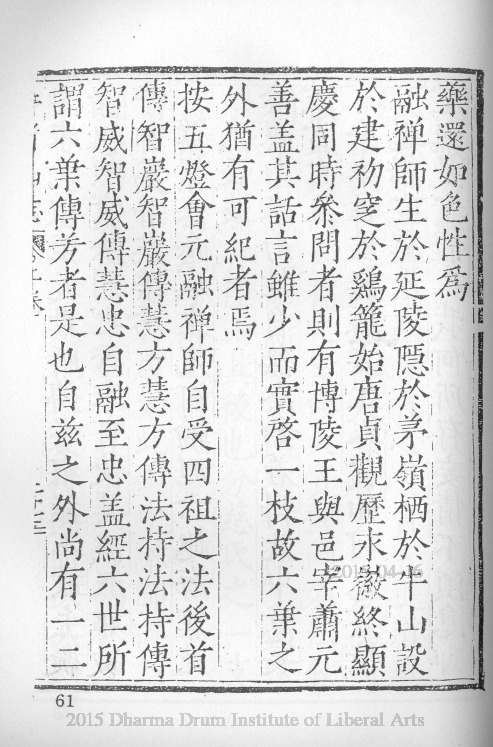 藥還如色性爲
融禅師生於延陵隱於茅嶺栖於牛山設
於建初窆於鷄籠始唐貞觀歷永徽終顯
慶同時叅問者則有博陵王與邑宰蕭元
善盖其話言雖少而實啓一枝故六葉之
外猶有可紀者焉
按五燈會元融禅師自受四祖之法後首
傳智嚴智嚴傳慧方慧方傳法持法持傳
智威智威傳慧忠自融至忠盖經六世所
謂六葉傳芳者是也自兹之外尚有一二
61
2015 Dharma Drum Institute of Liberal Arts